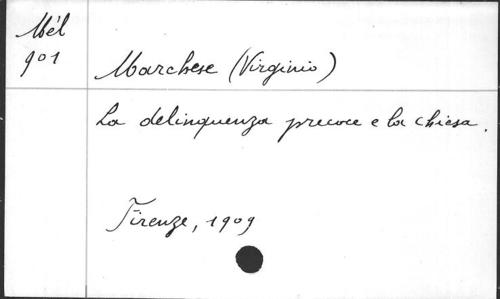 Mél
901
Marchese (Virginio)
La delinquenza precoce e la chiesa.
Firenze, 1909